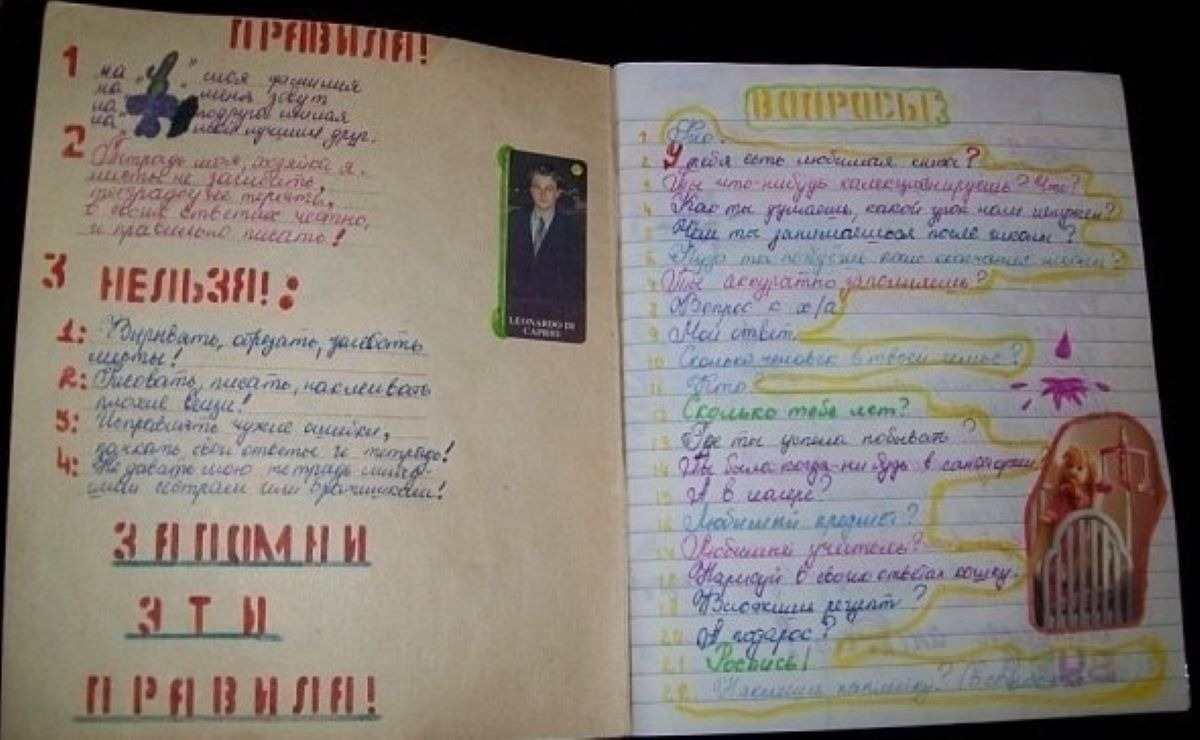 ПРАВИЛА!
1 на " " моя фамилия
на меня зовут
на подруга
на мой лучший друг.
2 Тетрадь моя, хозяйка я.
листы не загибать,
тетрадочку не терять,
в своих ответах честно,
и правильно писать!
3 НЕЛЬЗЯ!:
1: Вырывать, обрезать, загибать
листы!
2: Рисовать, писать, наклеивать
плохие вещи!
3: Исправлять чужие ошибки,
пачкать свои ответы и тетрадь!
4: Не давать мою тетрадь
сестрам или братишкам!
ЗАПОМНИ
ЭТИ
ПРАВИЛА!
LEONARDO DI
CAPRIO
ВОПРОСЫ:
1 Кто.
2 У тебя есть любимая книга?
3 Ты что-нибудь калекцианируешь? Что?
4 Как ты думаешь, какой урок нам ненужен?
5 Чем ты занимаешься после школы?
6 Куда ты пойдёшь после окончания школы?
7 Ты аккуратно заполняешь?
8 Вопрос с х/а
9 Мой ответ
10 Сколько человек в твоей семье?
11 Кто
12 Сколько тебе лет?
13 Где ты успела побывать?
14 Ты была когда-нибудь в санатории?
15 А в лагере?
16 Любимый предмет?
17 Любимый учитель?
18 Нарисуй в своих ответах кошку.
19 рецепт?
20 А подарок?
21 Роспись!
22 наклейку?